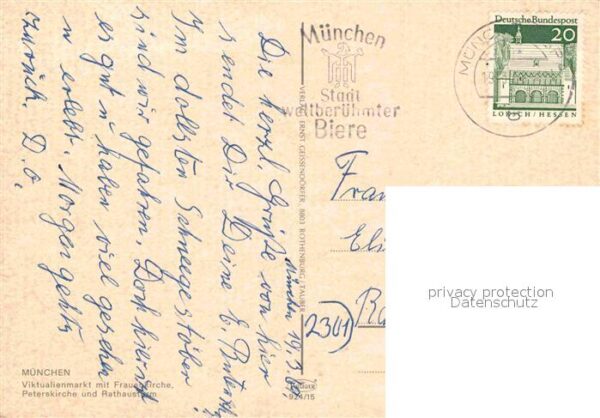 München, 19.3.
Die herzl. Grüße von hier
sendet Dir Deine E.
Im dollsten Schneegestöber
sind wir gefahren. Doch hier ist
es gut u haben viel gesehen
u erlebt. Morgen gehts
zurück. D. O.
München
Stadt
weltberühmter
Biere
Deutsche Bundespost
20
LORSCH/HESSEN
VERLAG ERNST GESSENDÖRFER, 8803 ROTHENBURG/TAUBER
2301
privacy protection
Datenschutz
MÜNCHEN
Viktualienmarkt mit Frauenkirche,
Peterskirche und Rathausturm
924/15